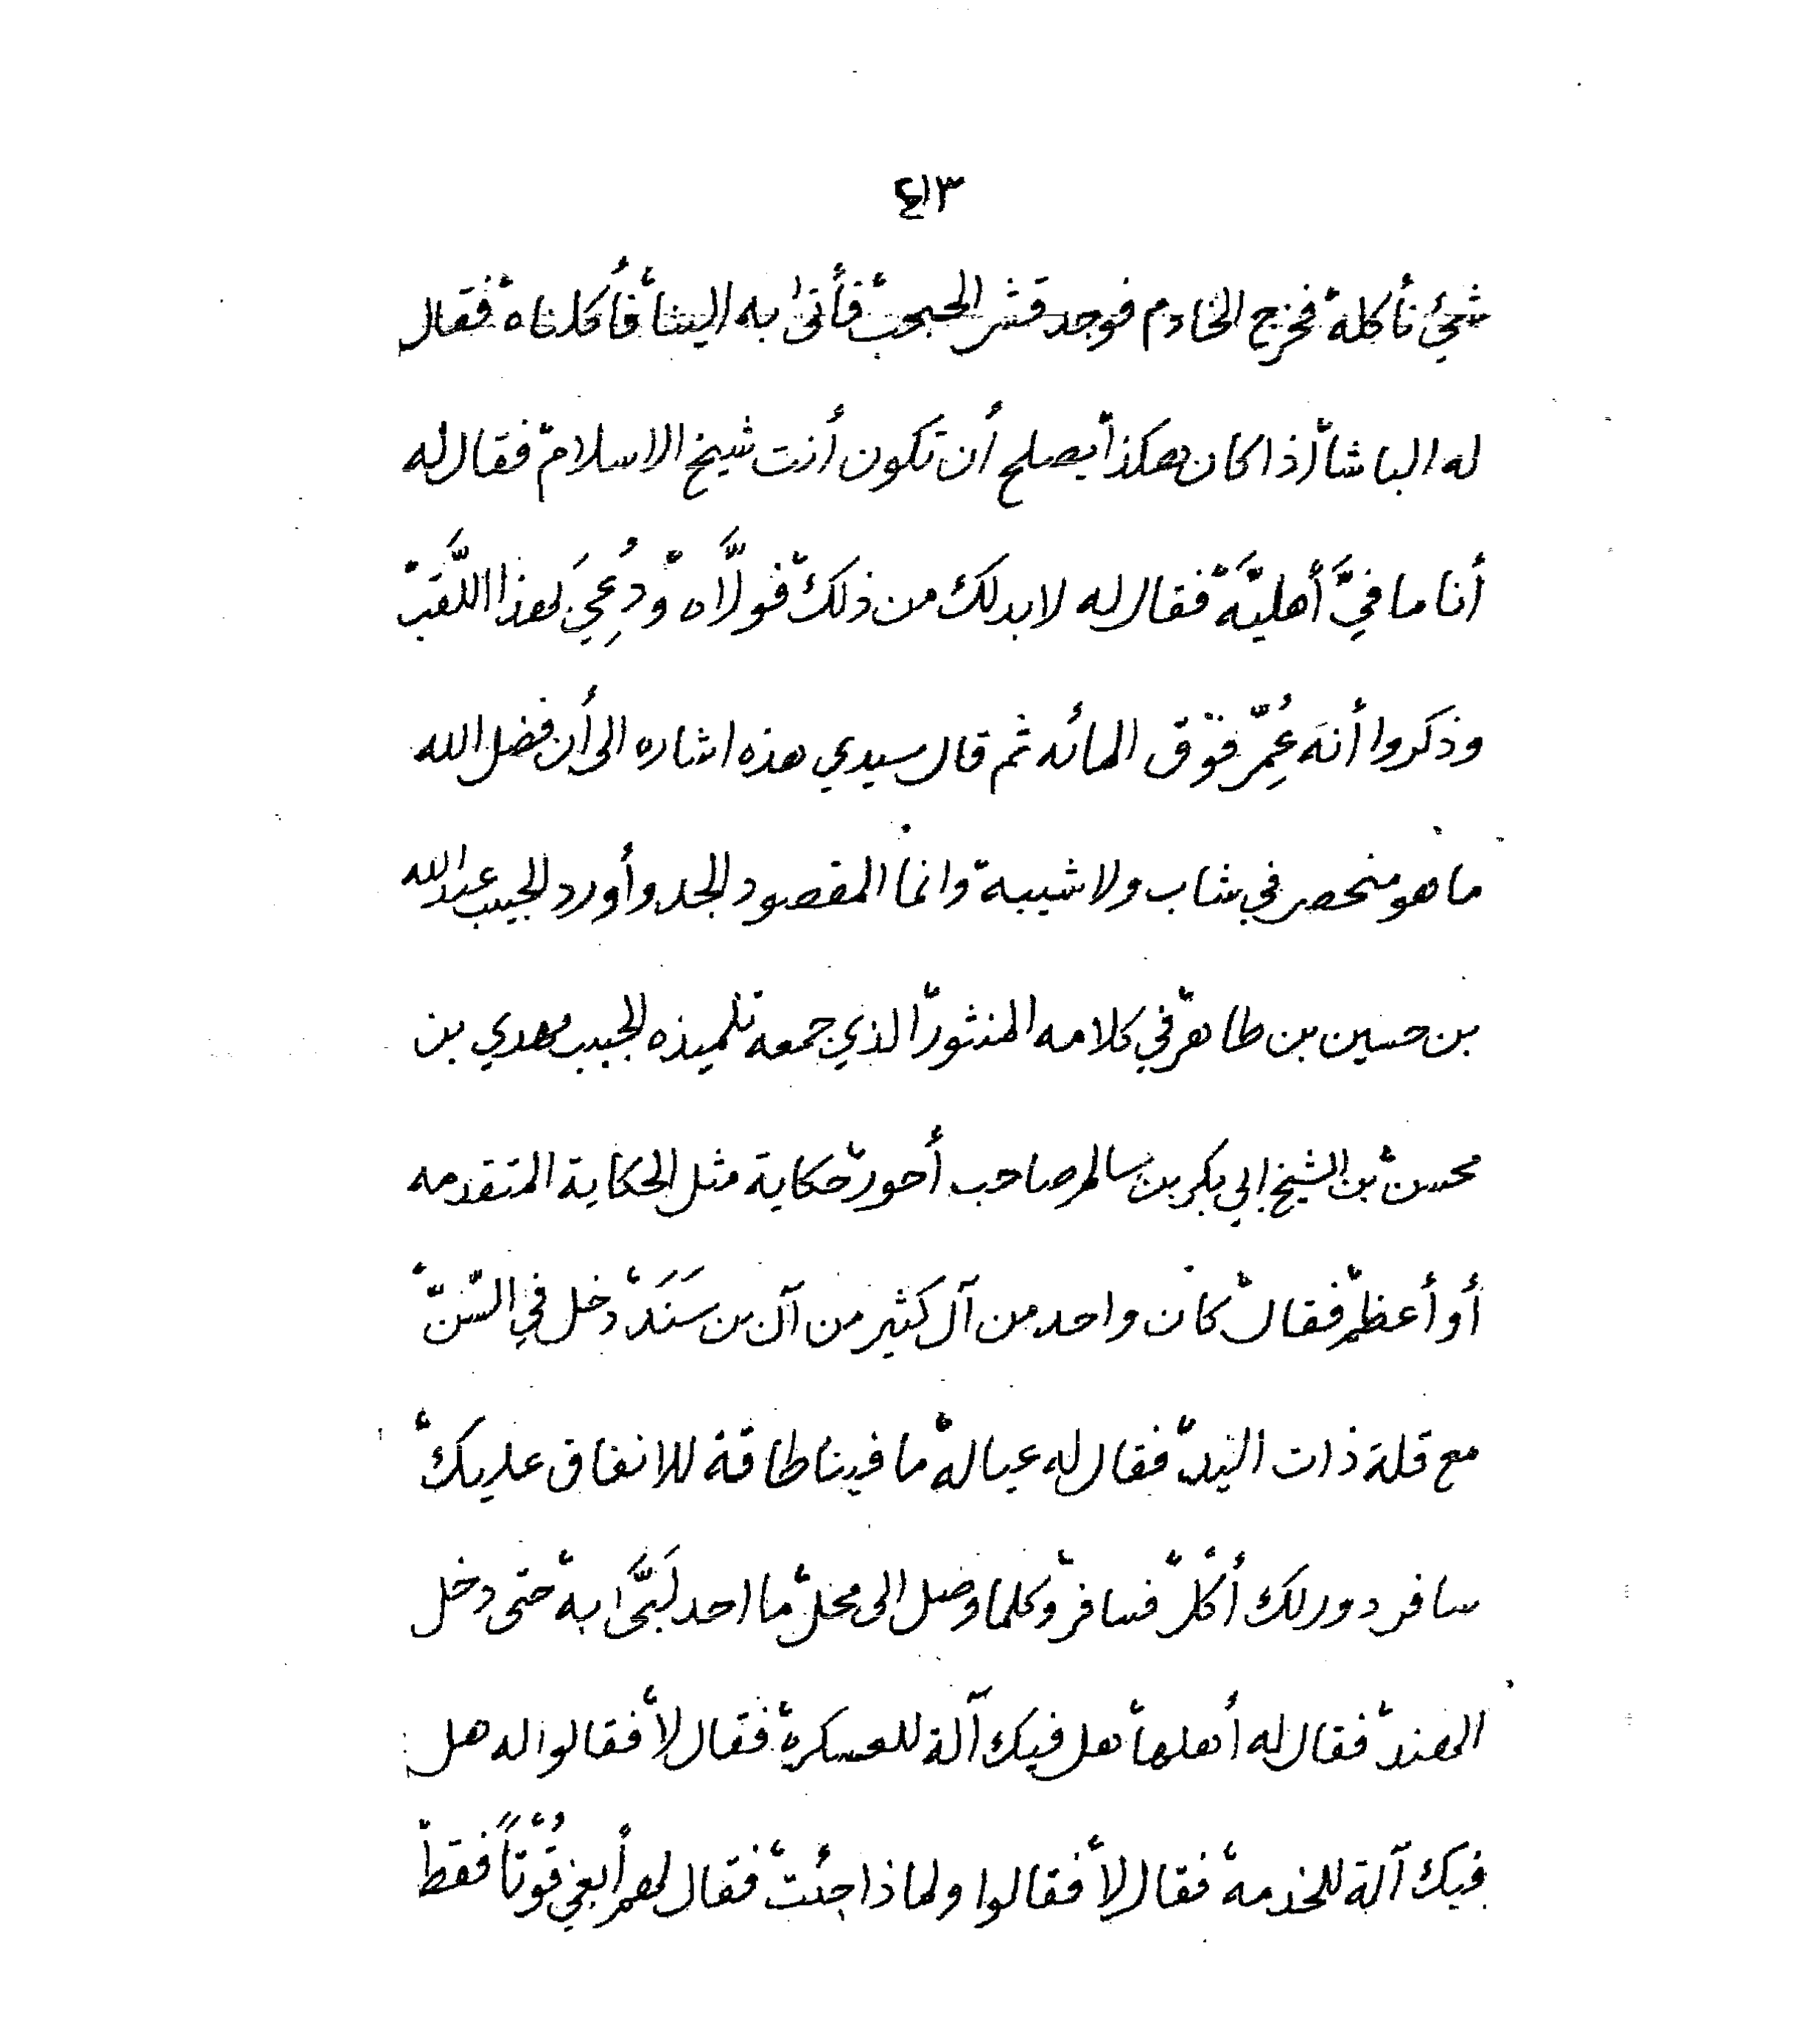 ٤١٣
شيئ نأكله فخرج الخادم فوجد قشر الحبحب فأتى به الينا فأكلناه فقال
له الباشا إذا كان هكذا يصلح أن تكون أنت شيخ الاسلام فقال له
أنا ما فِيَّ أهليَّة فقال له لا بد لك من ذلك فولَّاه ودُعِيَ بهذا اللَّقب
وذكروا أنه عُمِّر فوق المائه ثم قال سيدي هذه اشاره الى أن فضل الله
ما هو منحصر في شاب ولا شيبة وانما المقصود الجد وأورد الحبيب عبدالله
بن حسين بن طاهر في كلامه المنثور الذي جمعه تلميذه الحبيب مهدي بن
محسن بن الشيخ ابي بكر بن سالم صاحب أحور حكاية مثل الحكاية المتقدمه
أو أعظم فقال كان واحد من آل كثير من آل بن سَنَد دخل في السّنّ
مع قلة ذات اليد فقال له عياله ما فينا طاقة للانفاق عليك
سافر دور لك أكل فسافر وكلما وصل الى محل ما احد لَبَّى به حتى دخل
الهند فقال له أهلها هل فيك آلة للعسكرة فقال لا فقالوا له هل
فيك آلة للخدمة فقال لا فقالوا ولماذا جئت فقال لهم أبغي قُوْتاً فقط